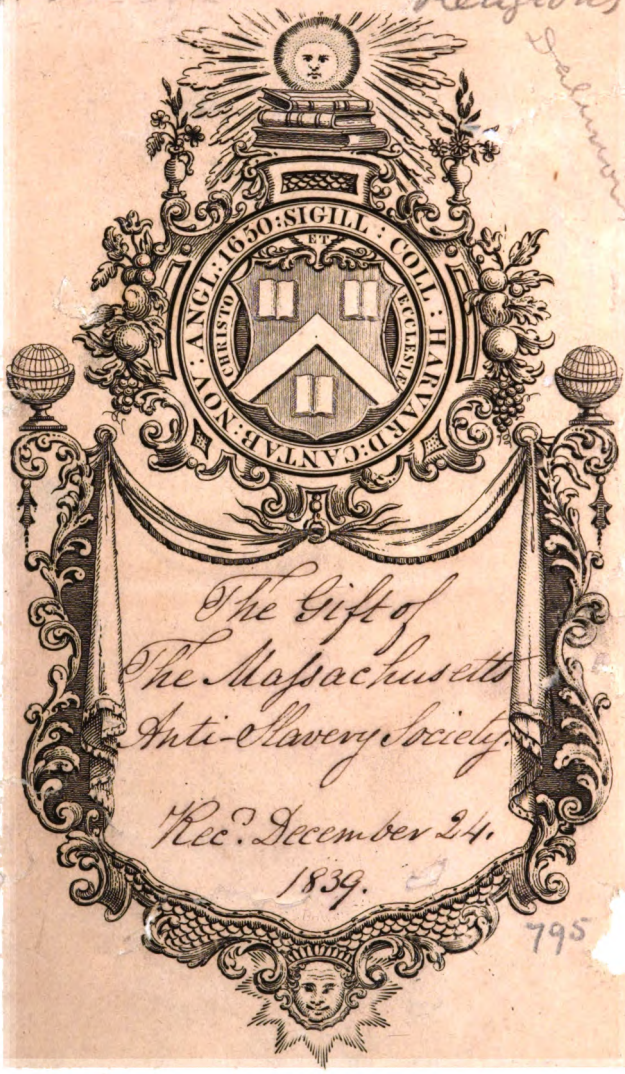 Religions
SIGILL : COLL : HARVARD : CANTAB : NOV : ANGL : 1650 :
CHRISTO ET ECCLESIÆ
The Gift of
The Maſsachusetts
Anti-Slavery Society.
Recd. December 24.
1839.
795